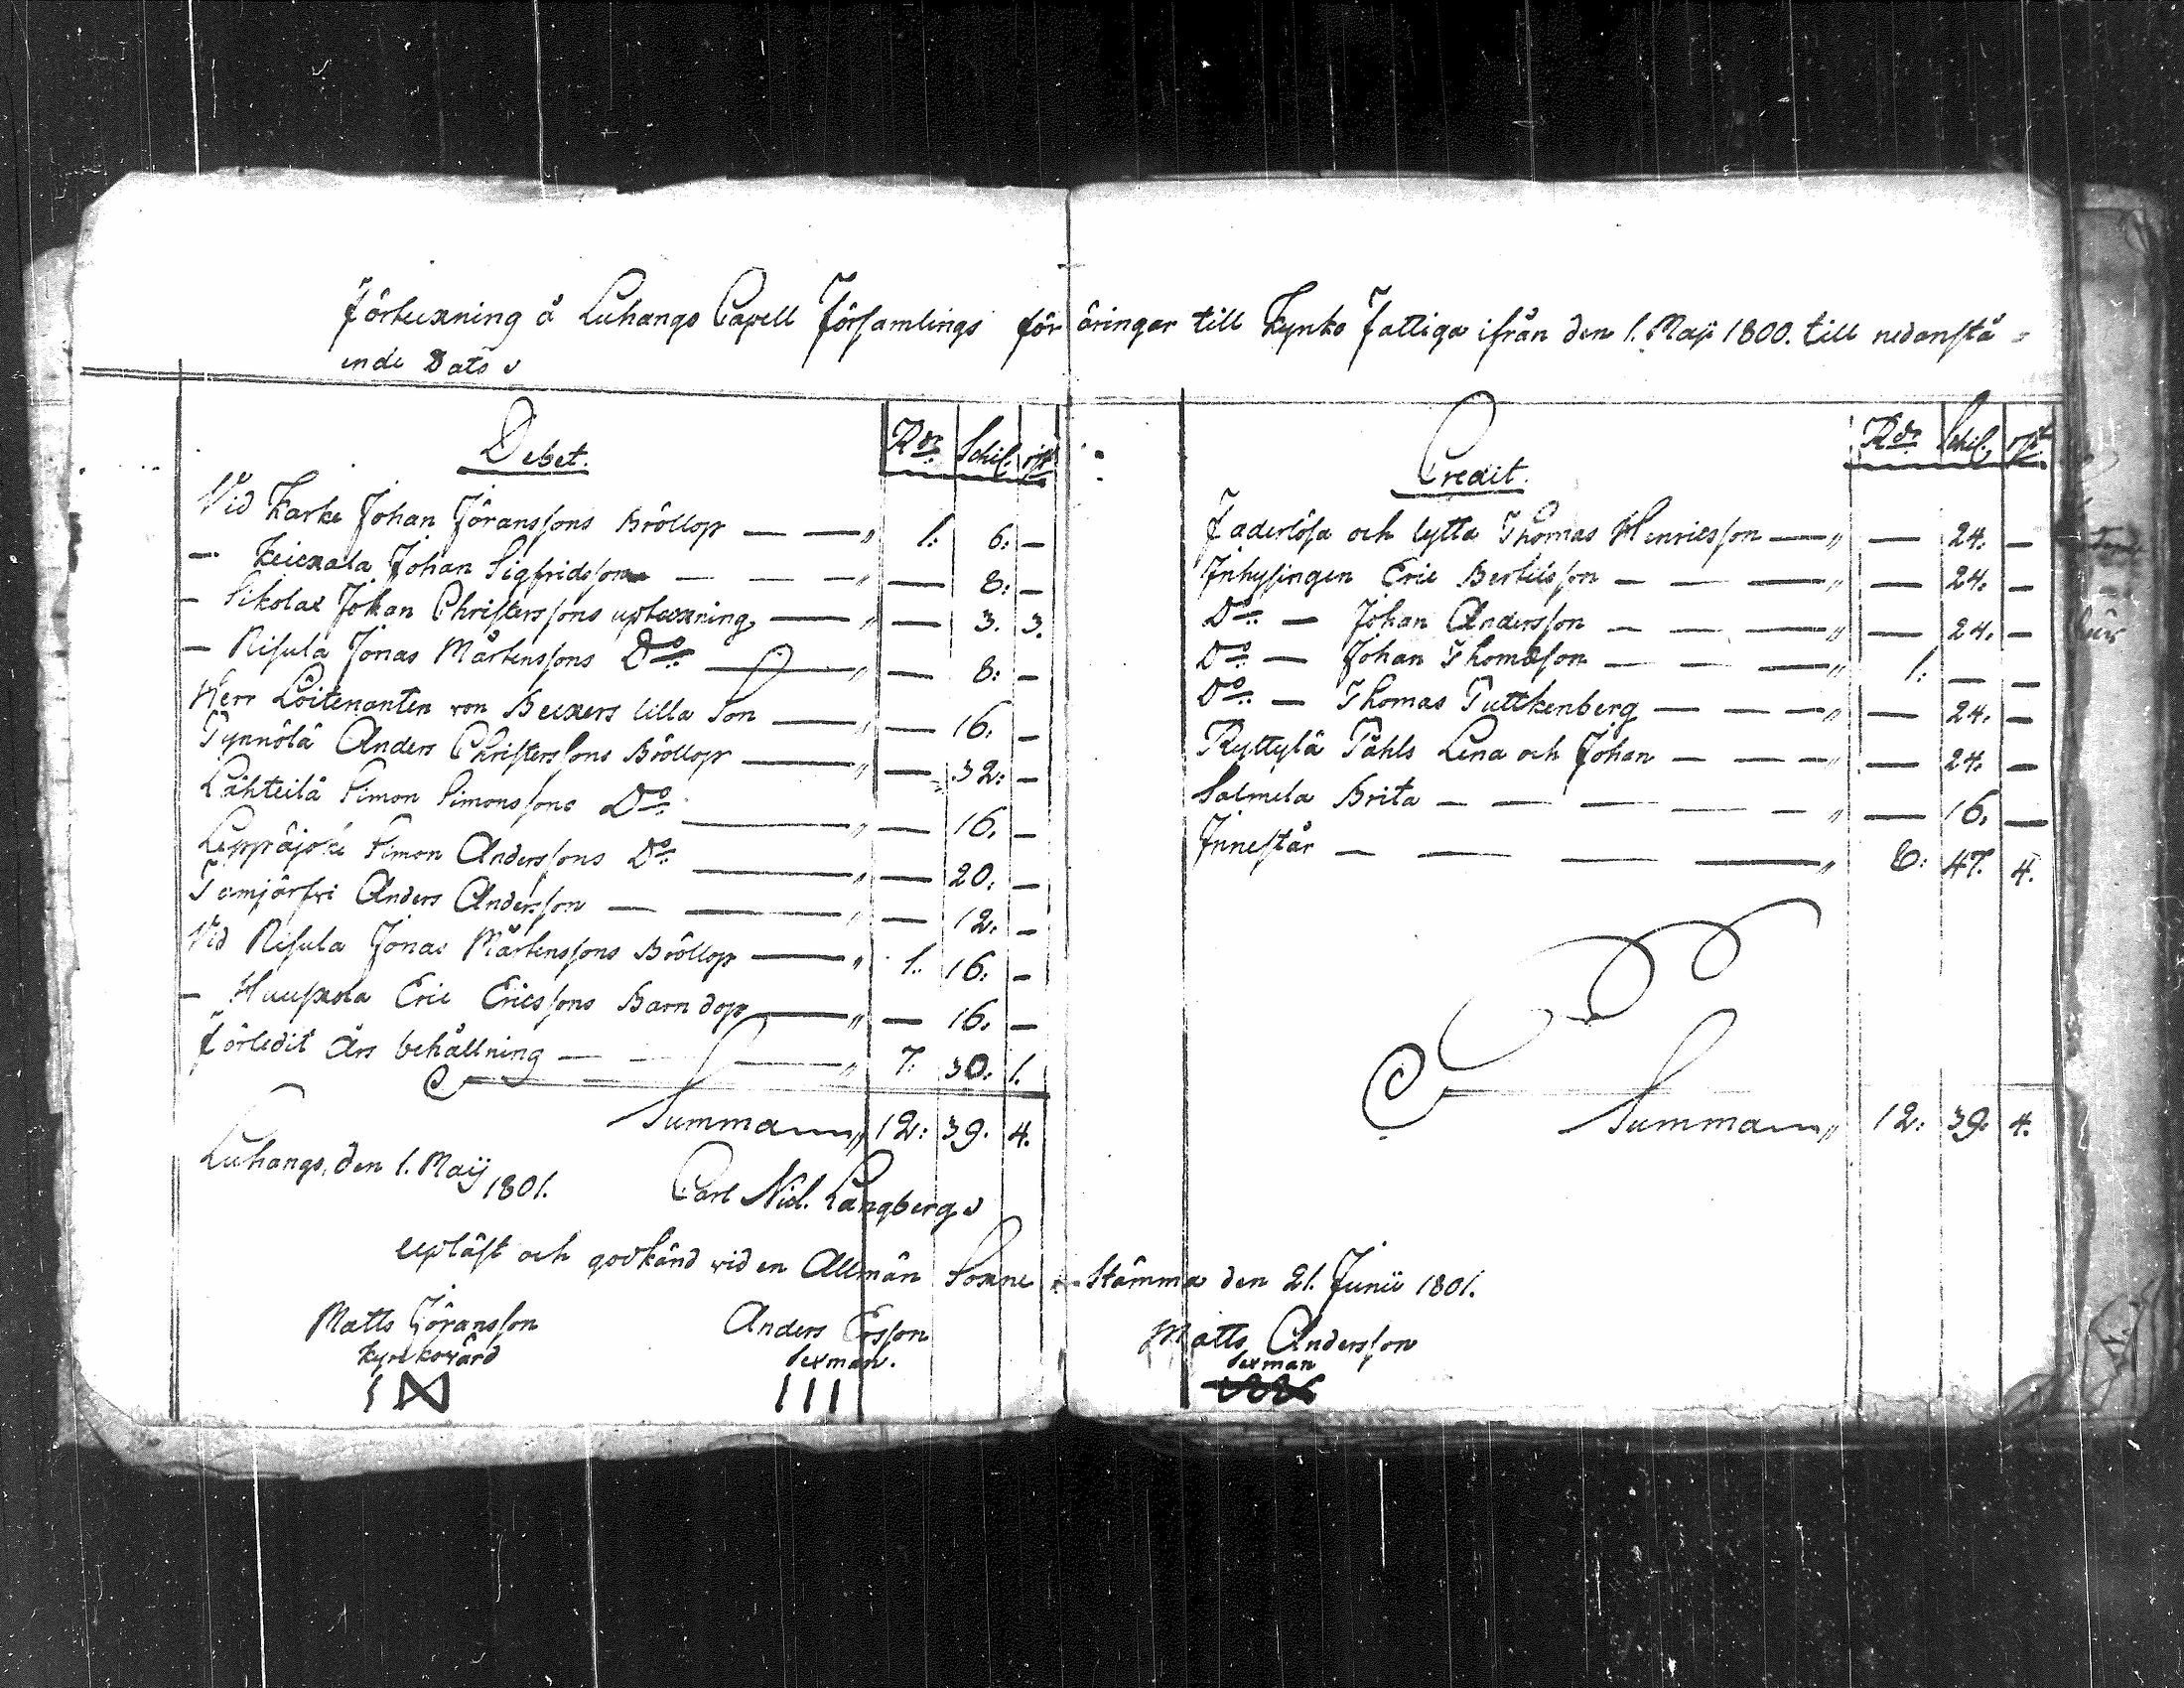 Förteckning å Luhango Capell Församlings föräringar till Kyrko Fattiga ifrån den 1. Maji 1800. till nedanstå-
ende Dato
Debet. Rdr Schil. rst
Vid Karke Johan Jöranssons Bröllop — — 1: 6: —
— Keickala Johan Sigfridssons — — — — 8: —
— Sikolax Johan Christerssons upteckning — — 3. 3.
— Risula Jonas Mårtenssons Do — — 8: —
Herr Löitenanten von Beckers lilla Son — — 16. —
Tynnölä Anders Christerssons Bröllop — — 32: —
Lähteilä Simon Simonssons Do — — 16. —
Leppäjoki Simon Anderssons Do — — 20: —
Anders Andersson — — — 12. —
Vid Risula Jonas Mårtenssons Bröllop — 1. 16: —
— Eric Ericssons Barndop — — 16. —
Förledit Års behållning — — — 7. 30. 1.
Summa 12: 39. 4.
Luhango, den 1. Maij 1801. Carl Nicl. Langberg
Credit. Rdr Schil. rst
Faderlösa och lytta Thomas Henricsson — — 24. —
Inhysingen Eric Bertilsson — — — — 24. —
Do — Johan Andersson — — — — 24. —
Do — Johan Thomæson — — — 1. — —
Do — Thomas Puttkenberg — — — — 24. —
Ryttylä Påhls Lena och Johan — — — — 24. —
Salmela Brita — — — — — — 16. —
Innestår — — — — 6: 47. 4.
Summa 12. 39. 4.
Upläst och godkänd vid en Allmän Sockne Stämma den 21. Junii 1801.
Matts Jöransson Anders Ersson Matts Andersson
Kyrckovärd Sexman. Sexman